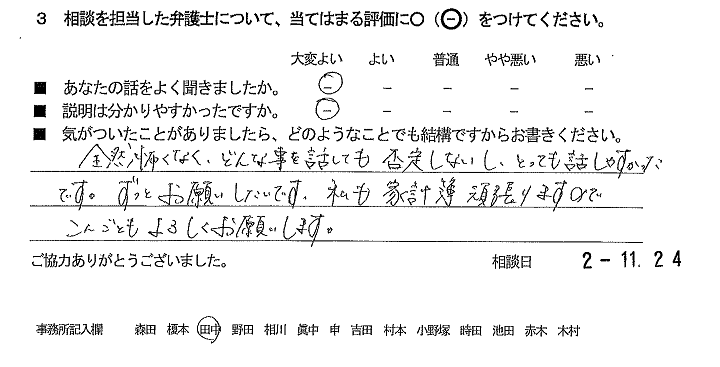 3 相談を担当した弁護士について、当てはまる評価に○（⊖）をつけてください。
大変よい よい 普通 やや悪い 悪い
■ あなたの話をよく聞きましたか。 － － － － －
■ 説明は分かりやすかったですか。 － － － － －
■ 気がついたことがありましたら、どのようなことでも結構ですからお書きください。
全然怖くなく、どんな事を話しても 否定しないし、とっても話しやすかった
です。ずっとお願いしたいです。私も 家計簿 頑張りますので
こんごとも よろしくお願いします。
ご協力ありがとうございました。 相談日 2-11.24
事務所記入欄 森田 榎本 田中 野田 相川 眞中 申 吉田 村本 小野塚 時田 池田 赤木 木村